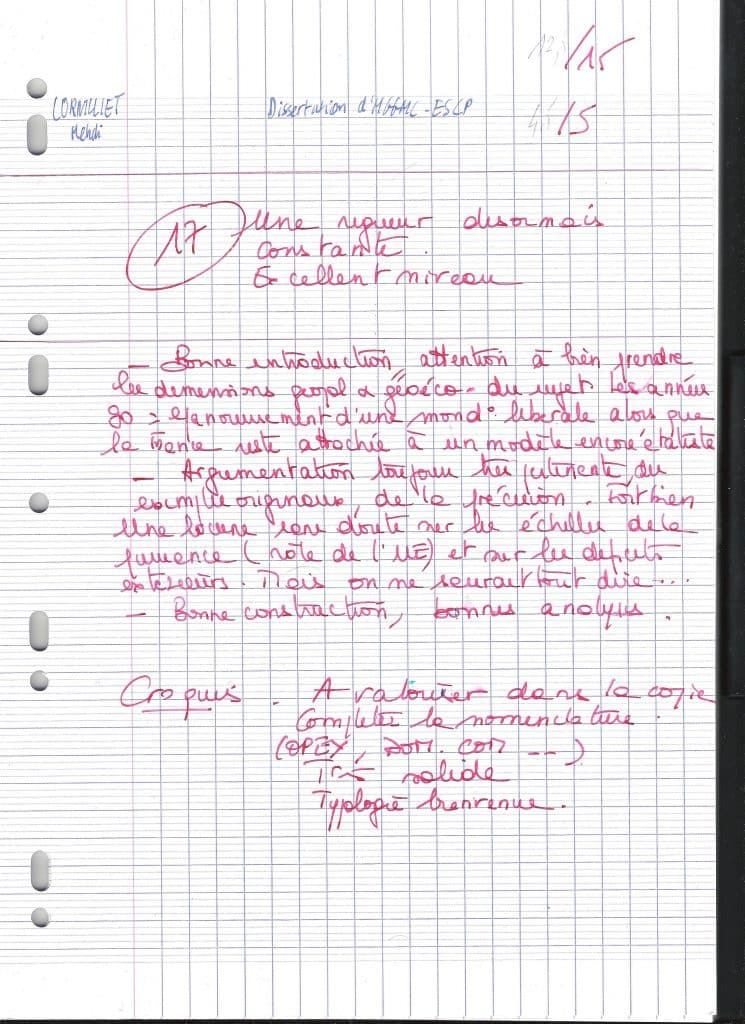 /15
CORMLIET Dissertation d'HGGMC-ESCP
Mehdi
/5
17 Une rigueur désormais
constante.
Excellent niveau
- Bonne introduction, attention à bien prendre
les dimensions géopol & géoéco - du sujet. Les années
80 = épanouissement d'une mond° libérale alors que
la France reste attachée à un modèle encore étatiste
- Argumentation toujours très pertinente, des
exemples originaux, de la précision. Fort bien
Une lacune sans doute sur les échelles de la
puissance (rôle de l'UE) et sur les déficits
extérieurs. Mais on ne saurait tout dire...
- Bonne construction, bonnes analyses.
Croquis. A valoriser dans la copie
Compléter la nomenclature.
(OPEX, DOM. COM ---)
Très solide
Typologie bienvenue.